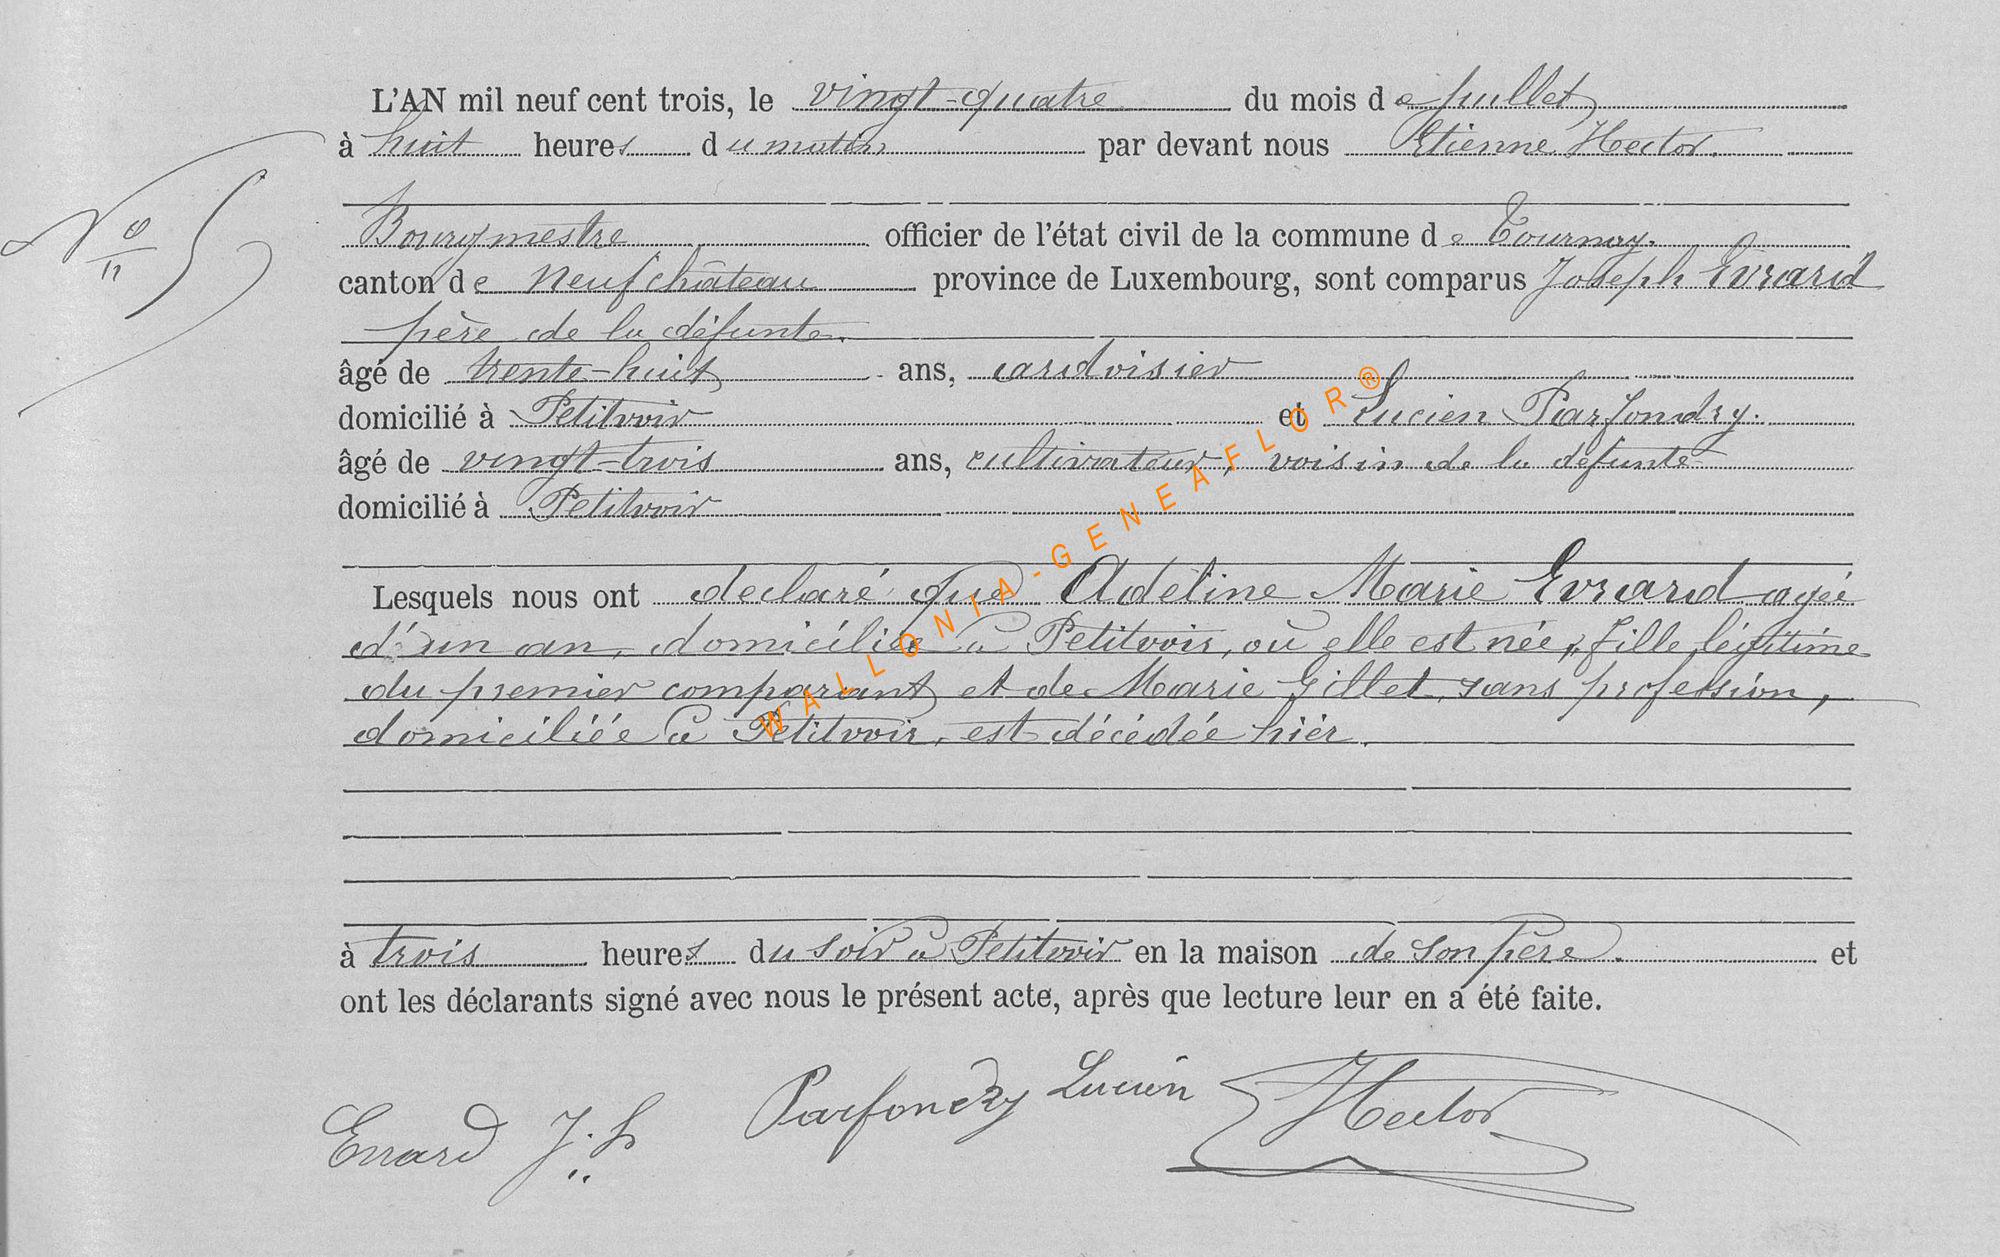 L'AN mil neuf cent trois, le vingt-quatre du mois de juillet
à huit heures du matin par devant nous Etienne Hector.
N° 5
Bourgmestre officier de l'état civil de la commune de Tournay.
canton de Neufchâteau province de Luxembourg, sont comparus Joseph Evrard
père de la défunte.
âgé de trente-huit ans, ardoisier
domicilié à Petitvoir et Lucien Parfondry.
âgé de vingt-trois ans, cultivateur, voisin de la défunte
domicilié à Petitvoir
Lesquels nous ont declaré que Adeline Marie Evrard agée
d'un an, domiciliée à Petitvoir, où elle est née, fille légitime
du premier comparant et de Marie Gillet, sans profession,
domiciliée à Petitvoir, est décédée hier.
à trois heures du soir à Petitvoir en la maison de son père. et
ont les déclarants signé avec nous le présent acte, après que lecture leur en a été faite.
Evrard J. h
Parfondry Lucien
Hector
WALLONIA-GENEAFLOR®